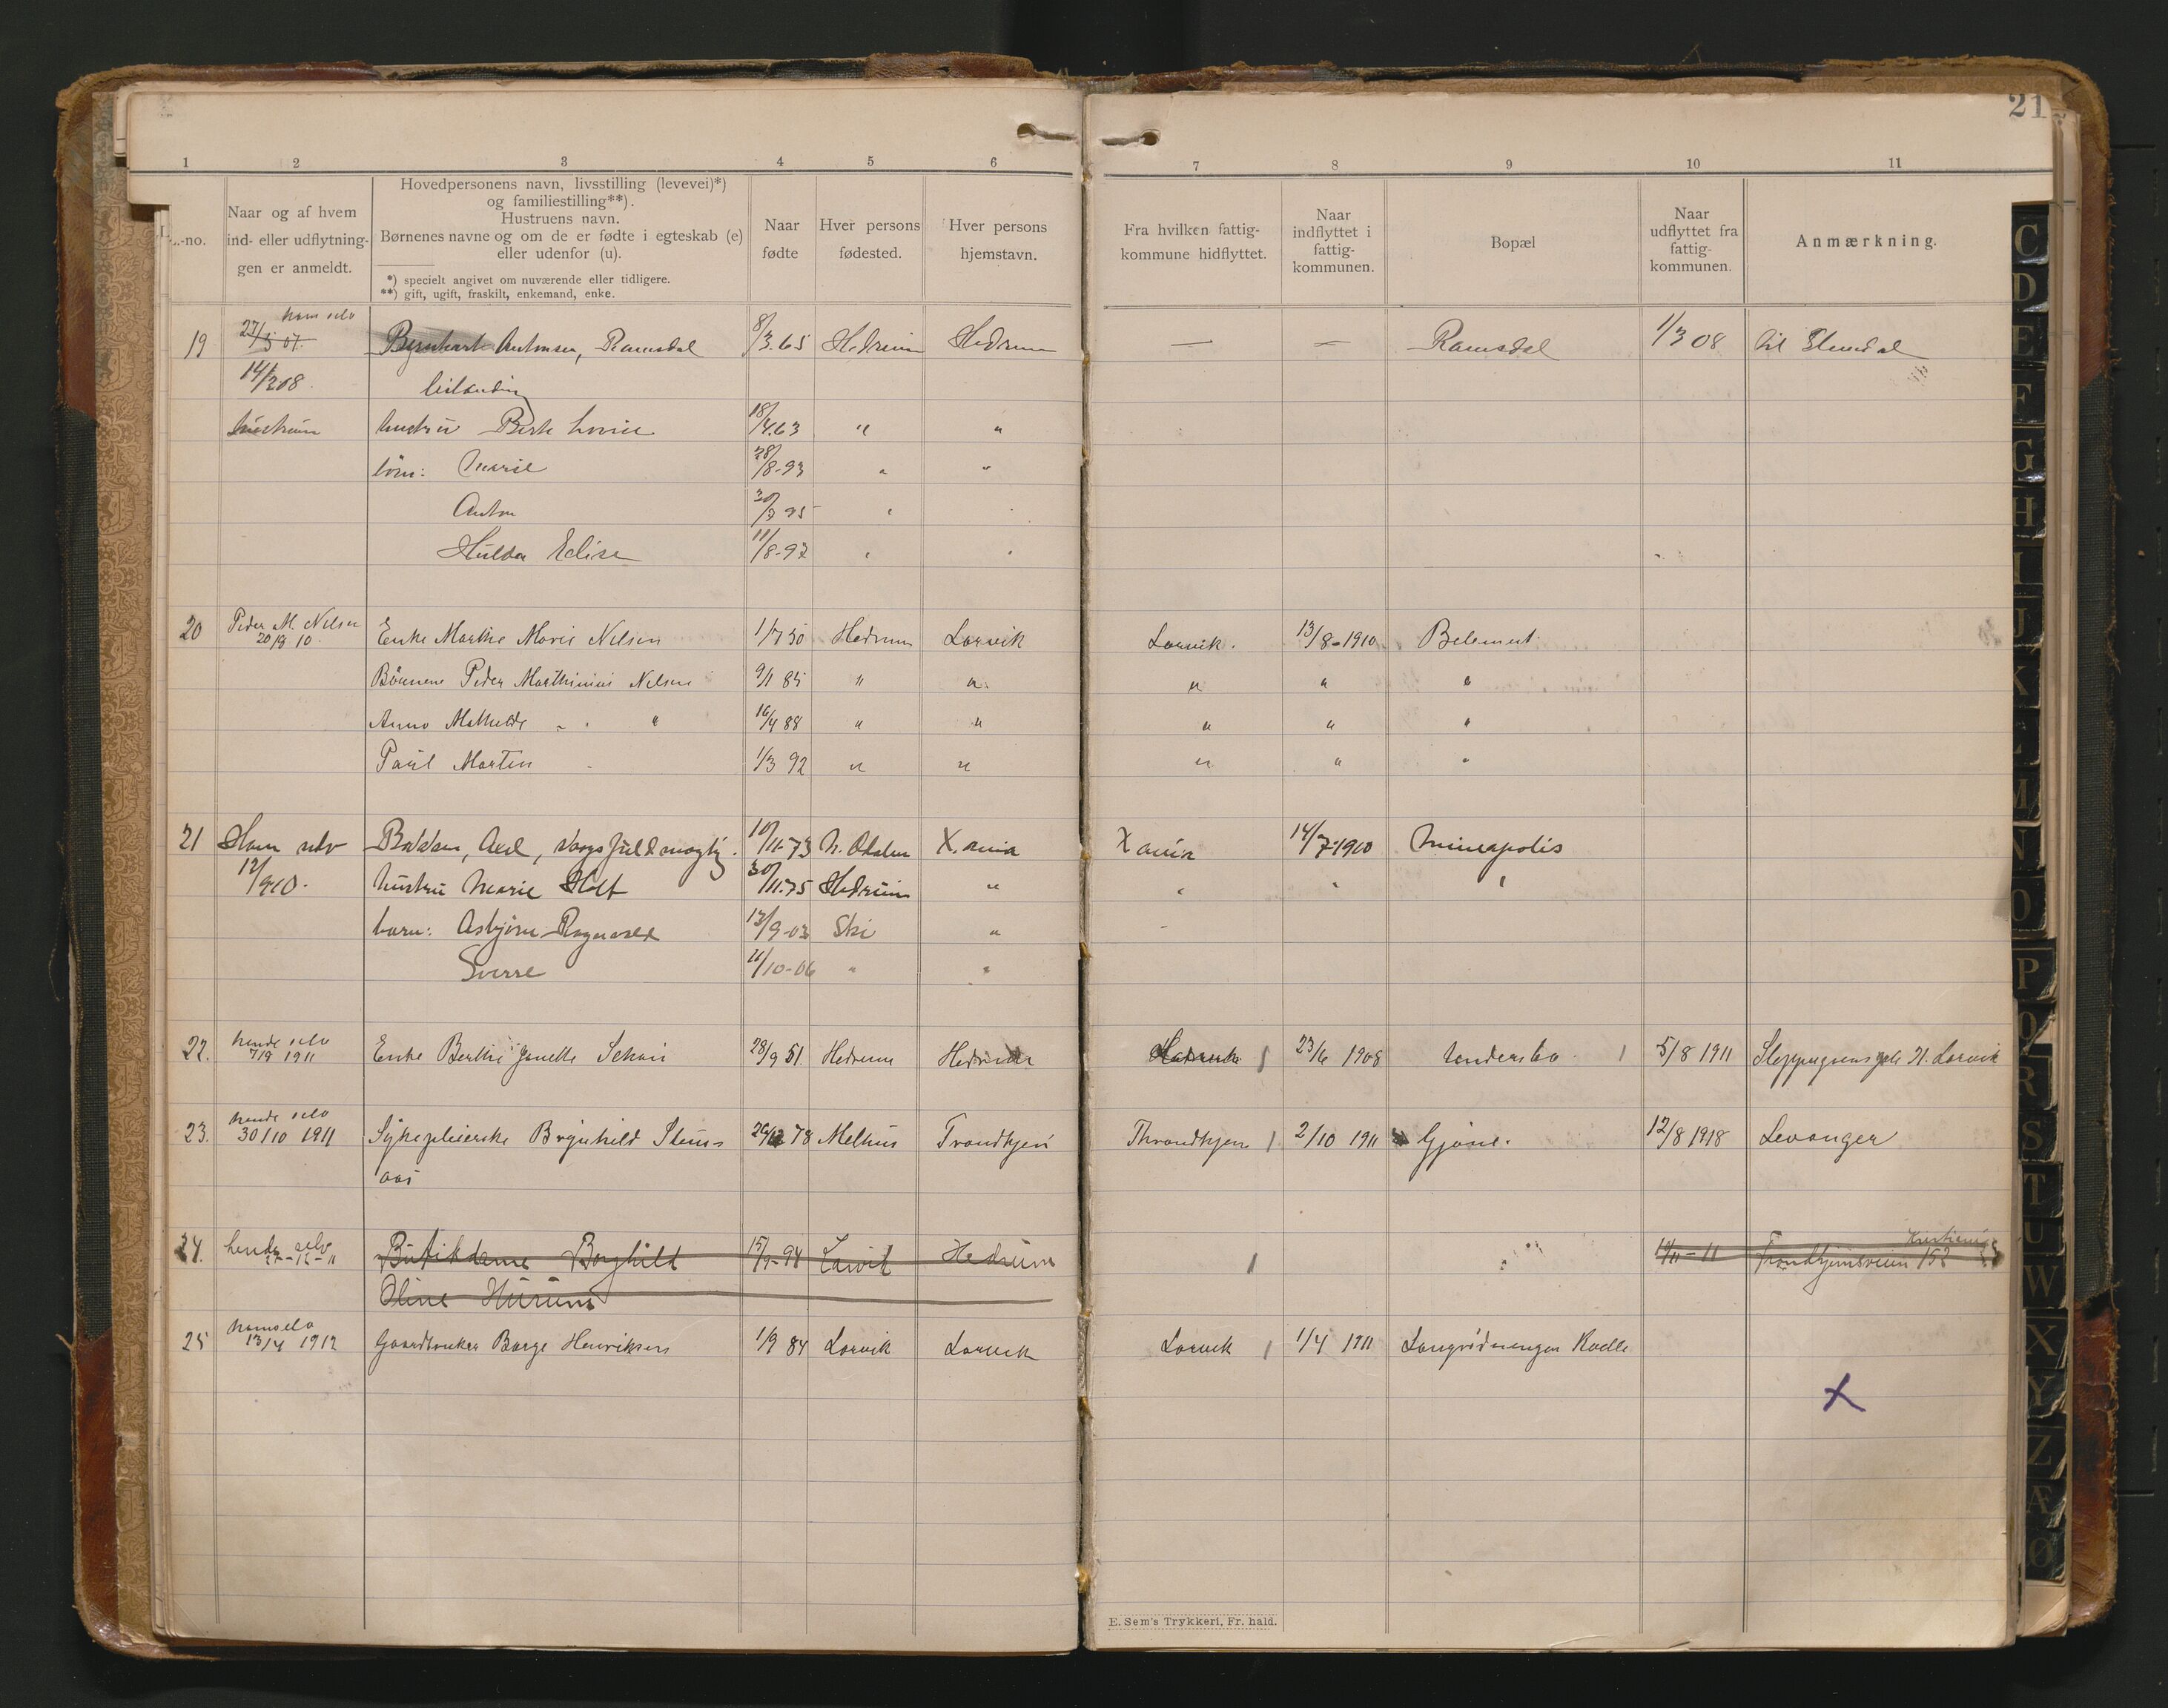 21
1 2 3 4 5 6 7 8 9 10 11
L.-no.
Naar og af hvem ind- eller udflytningen er anmeldt.
Hovedpersonens navn, livsstilling (levevei)*)
og familiestilling**).
Hustruens navn.
Børnenes navne og om de er fødte i egteskab (e)
eller udenfor (u).
*) specielt angivet om nuværende eller tidligere.
**) gift, ugift, fraskilt, enkemand, enke.
Naar fødte
Hver persons fødested.
Hver persons hjemstavn.
Fra hvilken fattigkommune hidflyttet.
Naar indflyttet i fattigkommunen.
Bopæl
Naar udflyttet fra fattigkommunen.
Anmærkning.
ham selv
19 27/3 07. Bernhart Antonsen, Ramsdal 8/3.65 Hedrum Hedrum — — Ramsdal 1/3 08 til
14/3 08. leilænding
hustru 18/4.63 " "
Marie 28/8-93 " "
Anton "
Hulda Elise 11/8-97 " "
20 Peder M. Nilsen Enke Marthe Marie Nilsen Hedrum Larvik Larvik. 13/8-1910 
20/8 10
Børnene Peder Marthinius Nilsen 9/1 85 " " " " "
Anna Mathilde " " 16/4 88 " " " " "
Paul Morten 1/3 92 " " " " "
21 Ham selv Bakken, Axel, 10/11.73 N. Odalen X.ania X ania 14/7-1910 Mineapolis
12/9 10. hustru Marie Holt 30/11.75 Hedrum " " " "
barn: Asbjørn Ragnvald 13/9-03 Ski "
Sverre 11/10-06 " "
22. hende selv Enke Berthe 28/9 51. Hedrum Hedrum 23/6 1908 5/8 1911 Larvik
7/9 1911
23. hende selv Sykepleierske Brynhild 78 Melhus Trondhjem Throndhjem 2/10 1911 Gjøne. 12/8 1918 Levanger
30/10 1911
aas
24. hende selv Butikdame Borghild 15/9-94 Larvik Hedrum Trondhjemsveien 152
27-12-11
Oline
25 ham selv Gaardbruker Borge Henriksen 1/9 84 Larvik Larvik Larvik 1/4 1911
13/4 1912
X
E. Sem's Trykkeri, Fr. hald.
C
D
E
F
G
H
I
J
K
L
M
N
O
P
Q
R
S
T
U
W
X
Y
Z
Æ
Ø